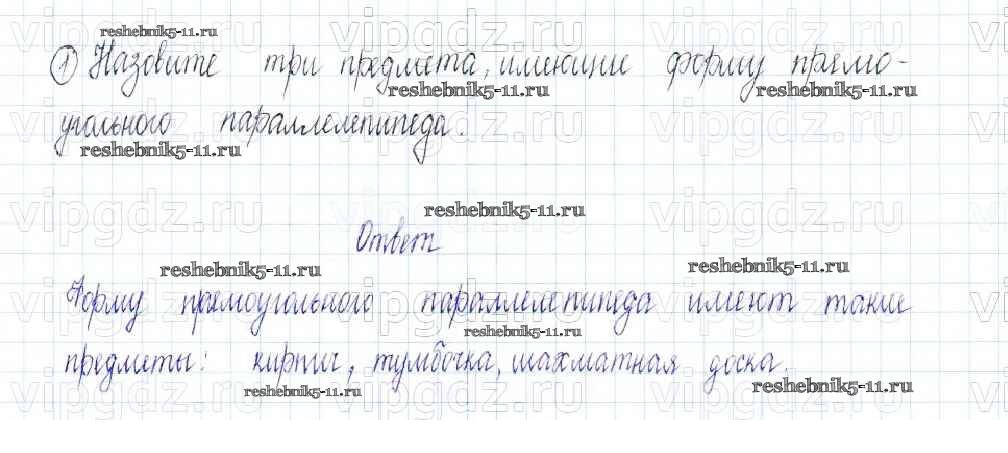 vipgdz.ru vipgdz.ru vipgdz.ru vipgdz.ru
reshebnik5-11.ru
1) Назовите три предмета, имеющие форму прямо-
reshebnik5-11.ru reshebnik5-11.ru
угольного параллелепипеда.
vipgdz.ru vipgdz.ru vipgdz.ru vipgdz.ru
reshebnik5-11.ru
vipgdz.ru vipgdz.ru vipgdz.ru vipgdz.ru
reshebnik5-11.ru
Ответ
reshebnik5-11.ru reshebnik5-11.ru
Форму прямоугольного параллелепипеда имеют такие
vipgdz.ru vipgdz.ru vipgdz.ru vipgdz.ru
reshebnik5-11.ru
предметы: кирпич, тумбочка, шахматная доска.
reshebnik5-11.ru reshebnik5-11.ru
vipgdz.ru vipgdz.ru vipgdz.ru vipgdz.ru